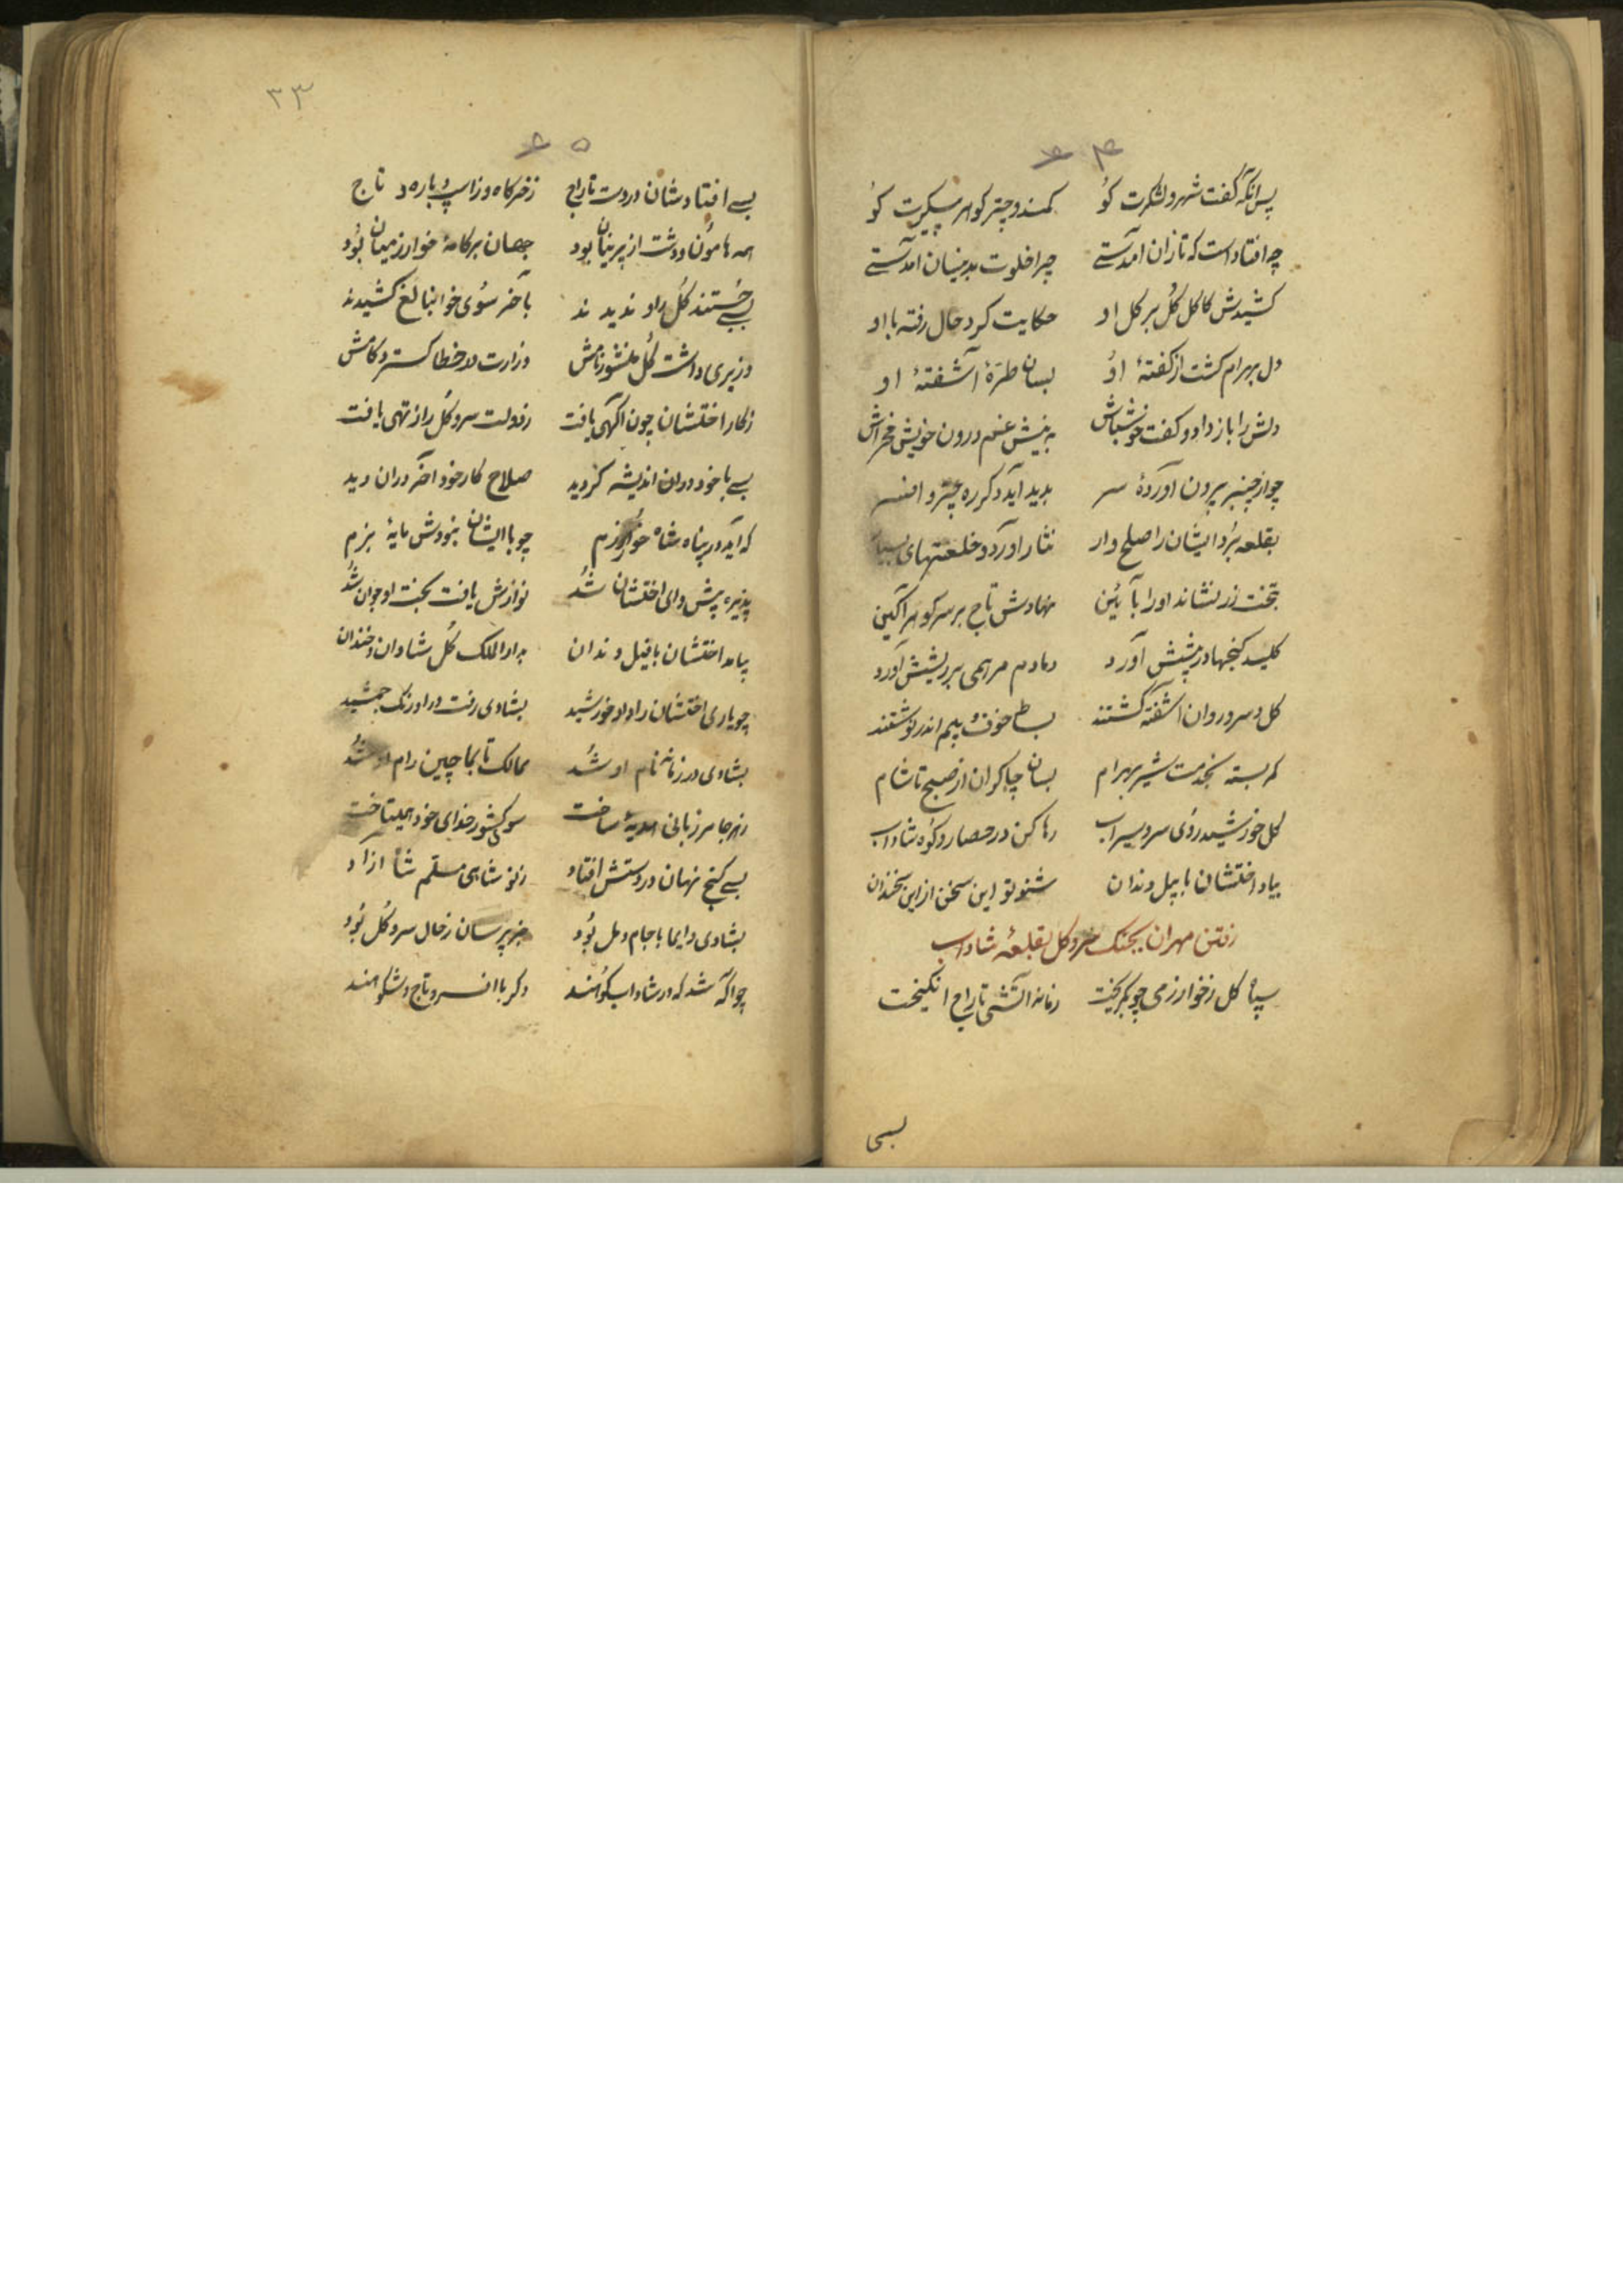 ۶۴
پس آنکه گفت شهر و لشکرت کو کمند و چتر کوهر پیکرت کو
چه افتاد است که تازان آمدستے چرا خلوت بدینسان آمدستے
کشیدش کاکل کل بر کل او حکایت کرد حال رفته با او
دل بهرام کشت از کفتهٔ او بسان طرهٔ آشفتهٔ او
دلش را باز داد و کفت خوش باش به نیش غم درون خویش مخراش
چو از چنبر برون آوردهٔ سر بدید آید دکر ره چتر و افسر
بقلعه برد ایشان را صلح وار نثار آورد و خلعتهای بسیار
بتخت زر نشاند او را بآئین نهادش تاج بر سر کوهر آکین
کلید کنجها در پیشش آورد دمادم مرهمی بر ریشش آورد
کل و سرو روان آشفته کشتند بساط خوف و بیم اندر نوشتند
کمر بسته بخدمت شیر بهرام بسان چاکران از صبح تا شام
کل خورشید روی سرو سیراب رها کن در حصار و کوه شاداب
بیاد اختشان با پیل دندان شنو تو این سخن از این سخندان
رفتن مهران بجنک سرو کل بقلعهٔ شاداب
سپاه کل ز خوارزمی چو بکریخت زمانه آتشی تاراج انکیخت
بسی
۳۳
۶۵
بسے افتاد شان در دست تاراج ز خرکاه و ز اسپ و باره و تاج
همه هامون و دشت از پرنیان بود جهان بر کامهٔ خوارزمیان بود
بسے جستند کل را و ندیدند بآخر سوی خوا کشیدند
وزیری داشت کل منشور نامش وزارت در خطا کسترد کامش
ز کار اختشان چون آکهی یافت ز دولت سرو کل را ز تهی یافت
بسے با خود در ان اندیشه کردید صلاح کار خود آخر در ان دید
که آید در پناه شاه خوارزم چو با ایشان نبودش مایهٔ بزم
پذیره پیش رای اختشان شد نوازش یافت بخت او جوان شد
بیامد اختشان با فیل دندان به دار الملک کل شادان و خندان
چو یاری اختشان را داد خورشید بشادی رفت در اورنک جمشید
بشادی در زمانه نام او شد ممالک تا بماچین رام او شد
بهر جا مرزبانی هدیهٔ ساخت سوی کشور خدای خود همیتاخت
بسے کنج نهان در دستش افتاد ز نو شاهی مسلم شد ازاد
بشادی دایما با جام و مل بود خبر پرسان ز حال سرو کل بود
چو آکه شد که در شاداب کوهند دکر با افسر و تاج و شکوهند